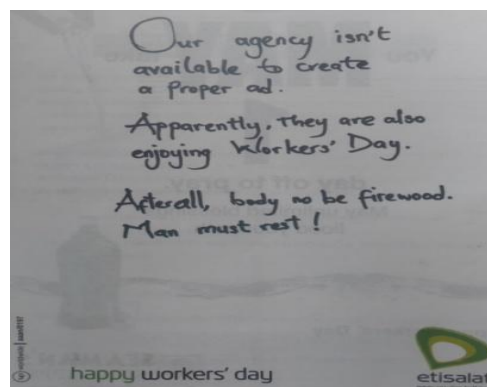 Our agency isn't
available to create
a proper ad.
Apparently, They are also
enjoying Workers' Day.
Afterall, body no be firewood.
Man must rest!
happy workers' day
etisalat